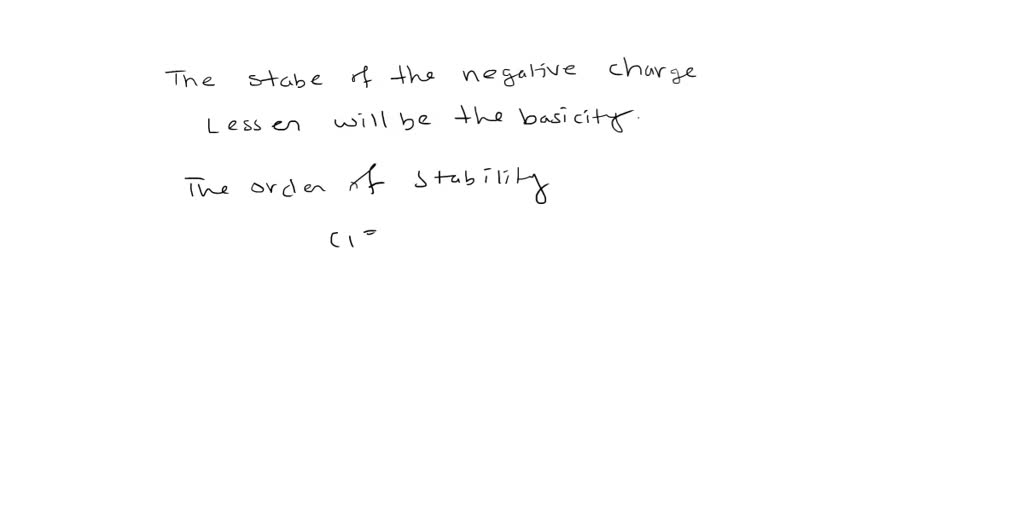 The stabe of the negative charge
Lesser will be the basicity.
The order of stability
Cl⁻